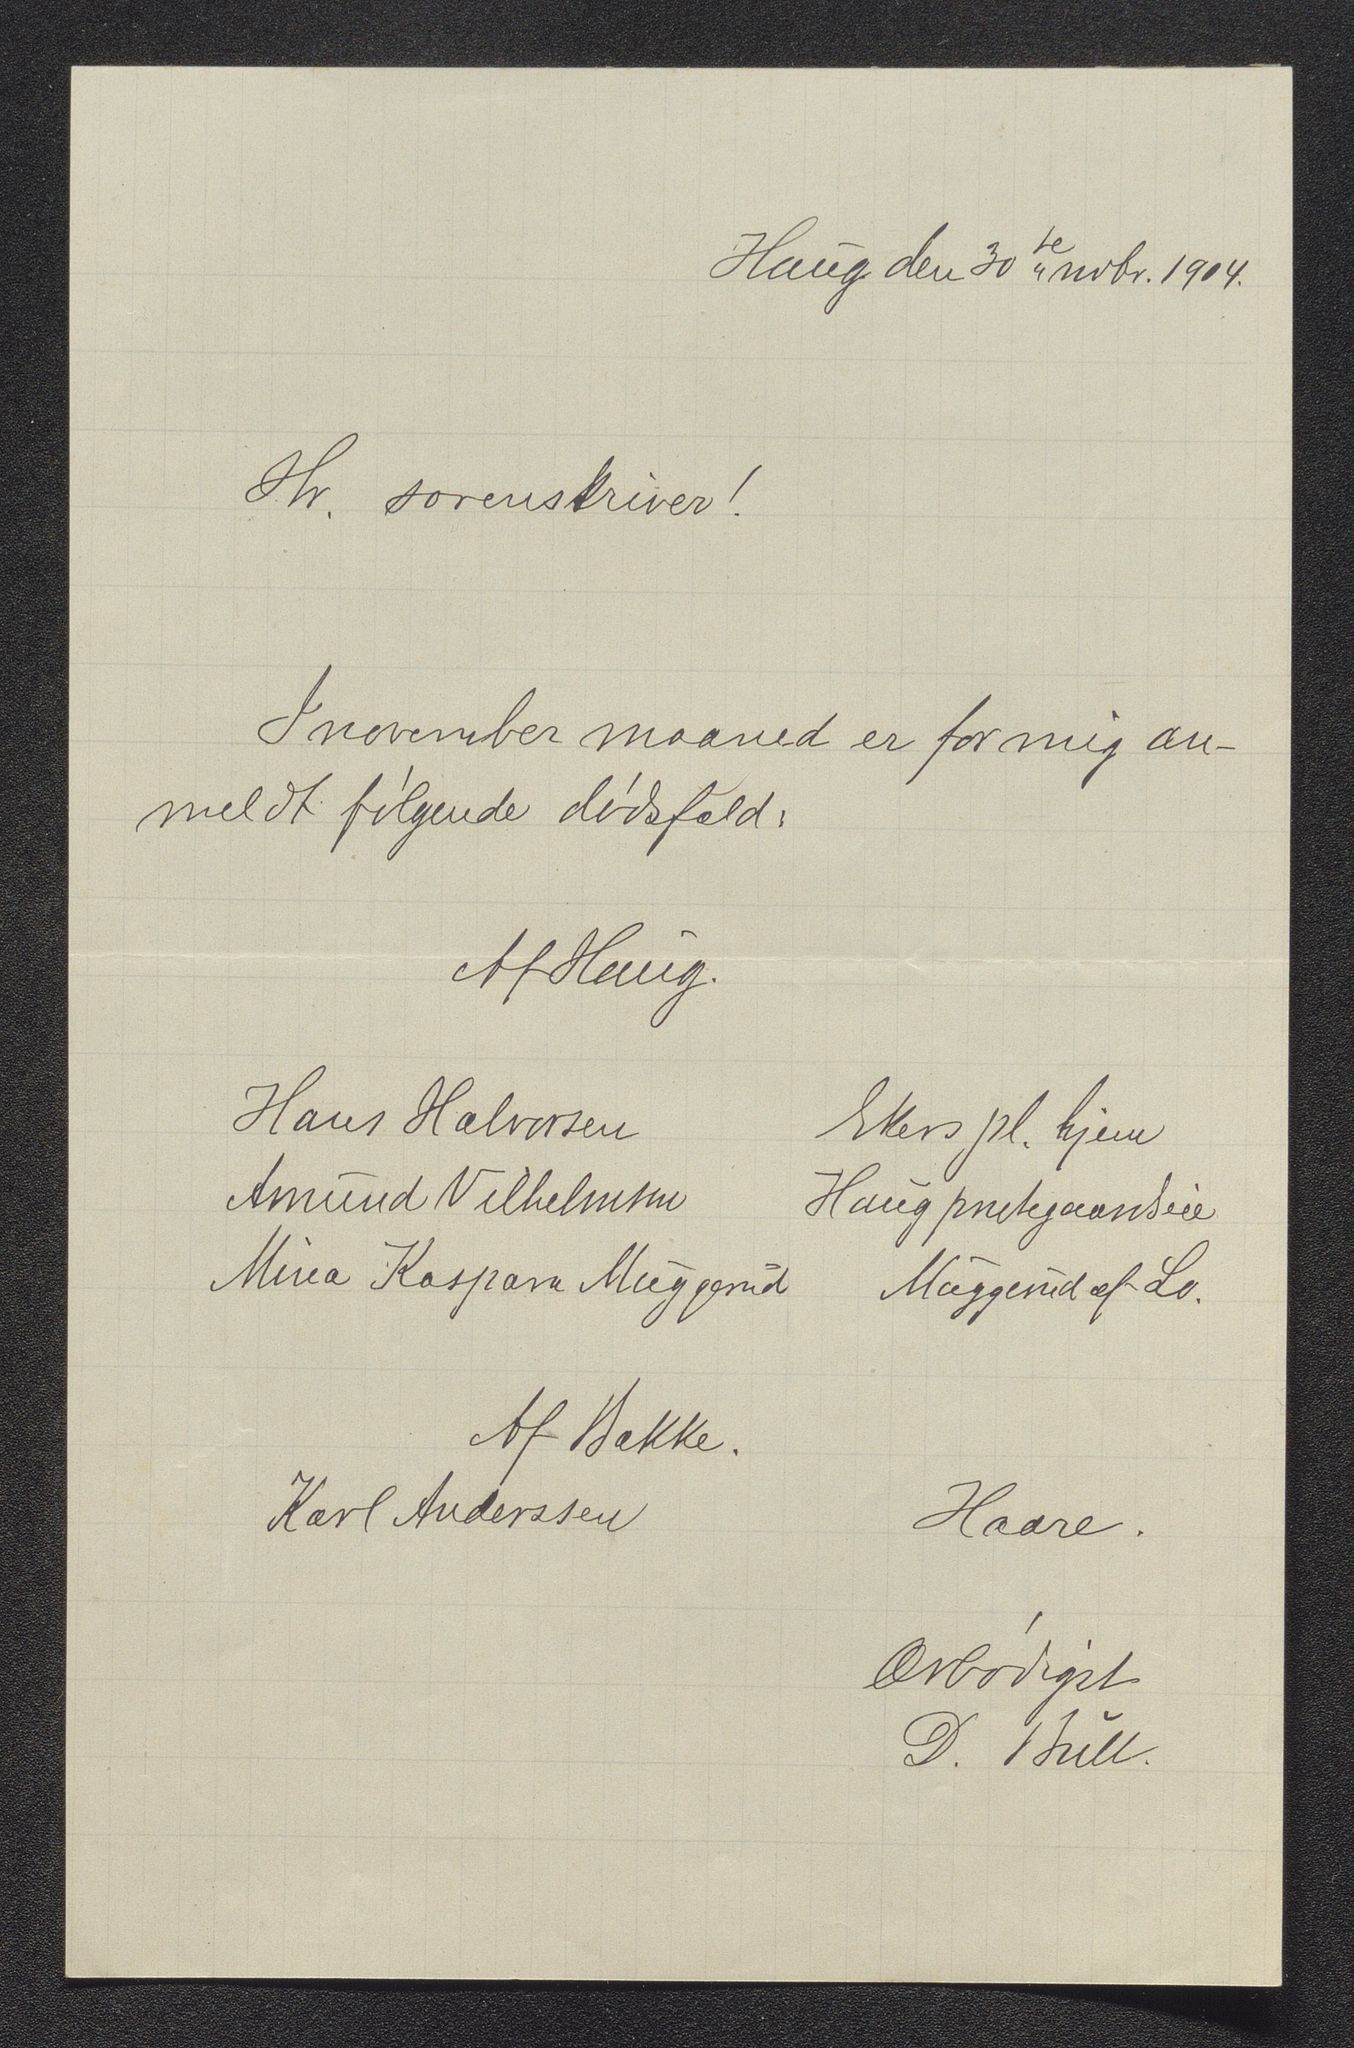 Haug den 30te novbr. 1904.
Hr. sorenskriver!
I november maaned er for mig an-
meldt følgende dødsfald:
Af Haug.
Hans Halvorsen Ekers pl. hjem
Amund Vilhelmsen Haug prestegaardseie
Mina Kaspara Muggerud Muggerud af Lo.
Af Bakke.
Karl Anderssen Haare.
Ærbødigst
D. Bull.